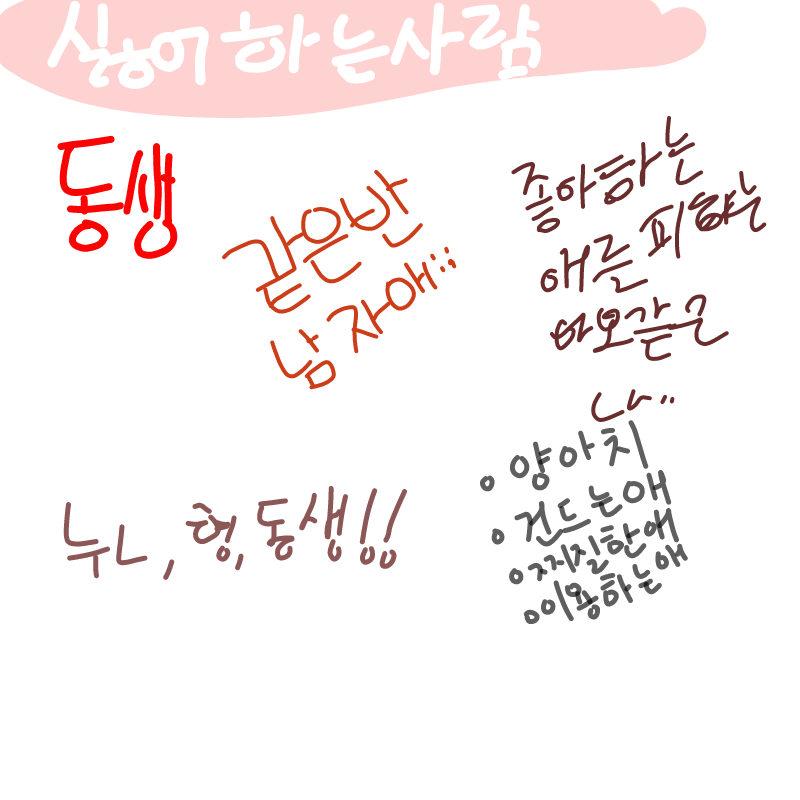 싫어하는사람
동생
같은반
남자애;;
좋아하는
애를 피하는
바보같은
나..
누나, 형, 동생!!
양아치
건드는애
찌질한애
이용하는애